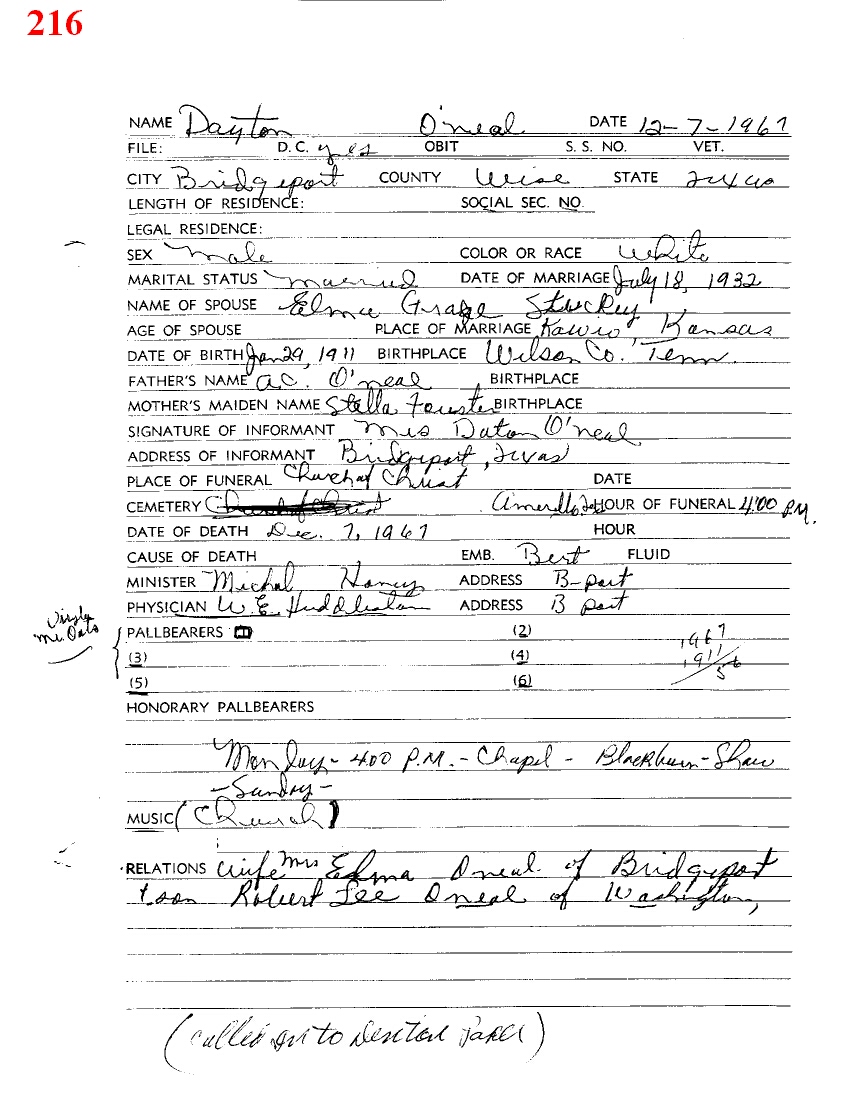 216
NAME Dayton O'neal DATE 12-7-1967
FILE: D.C. yes OBIT S. S. NO. VET.
CITY Bridgeport COUNTY Wise STATE Texas
LENGTH OF RESIDENCE: SOCIAL SEC. NO.
LEGAL RESIDENCE:
SEX Male COLOR OR RACE White
MARITAL STATUS married DATE OF MARRIAGE July 18, 1932
NAME OF SPOUSE Elma Stuckey
AGE OF SPOUSE PLACE OF MARRIAGE Kansas
DATE OF BIRTH Jan 29, 1911 BIRTHPLACE Wilson Co. Tenn.
FATHER'S NAME A.C. O'neal BIRTHPLACE
MOTHER'S MAIDEN NAME Stella BIRTHPLACE
SIGNATURE OF INFORMANT Mrs Daton O'neal
ADDRESS OF INFORMANT Bridgeport, Texas
PLACE OF FUNERAL Church of Christ DATE
CEMETERY HOUR OF FUNERAL 4:00 P.M.
DATE OF DEATH Dec. 7, 1967 HOUR
CAUSE OF DEATH EMB. Bert FLUID
MINISTER Michal ADDRESS B-port
PHYSICIAN W.E. Huddleston ADDRESS B port
PALLBEARERS (1) (2) 1967
(3) (4) 1911
(5) (6) 56
HONORARY PALLBEARERS
Monday - 4:00 P.M. - Chapel - Blackburn-Shaw
-Sunday-
MUSIC (Church)
RELATIONS wife Mrs Elma Oneal of Bridgeport
1 son Robert Lee Oneal of Washington,
(called in to Denton Paper)